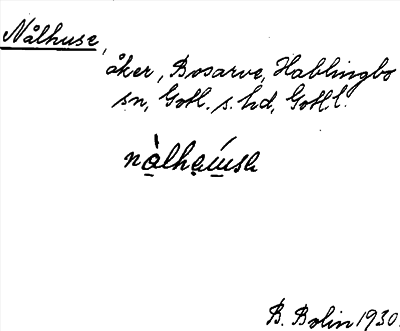 Nålhuse,
åker, Bosarve, Hablingbo
sn, Gotl. s. hd, Gotl.l.
B. Bolin 1930.